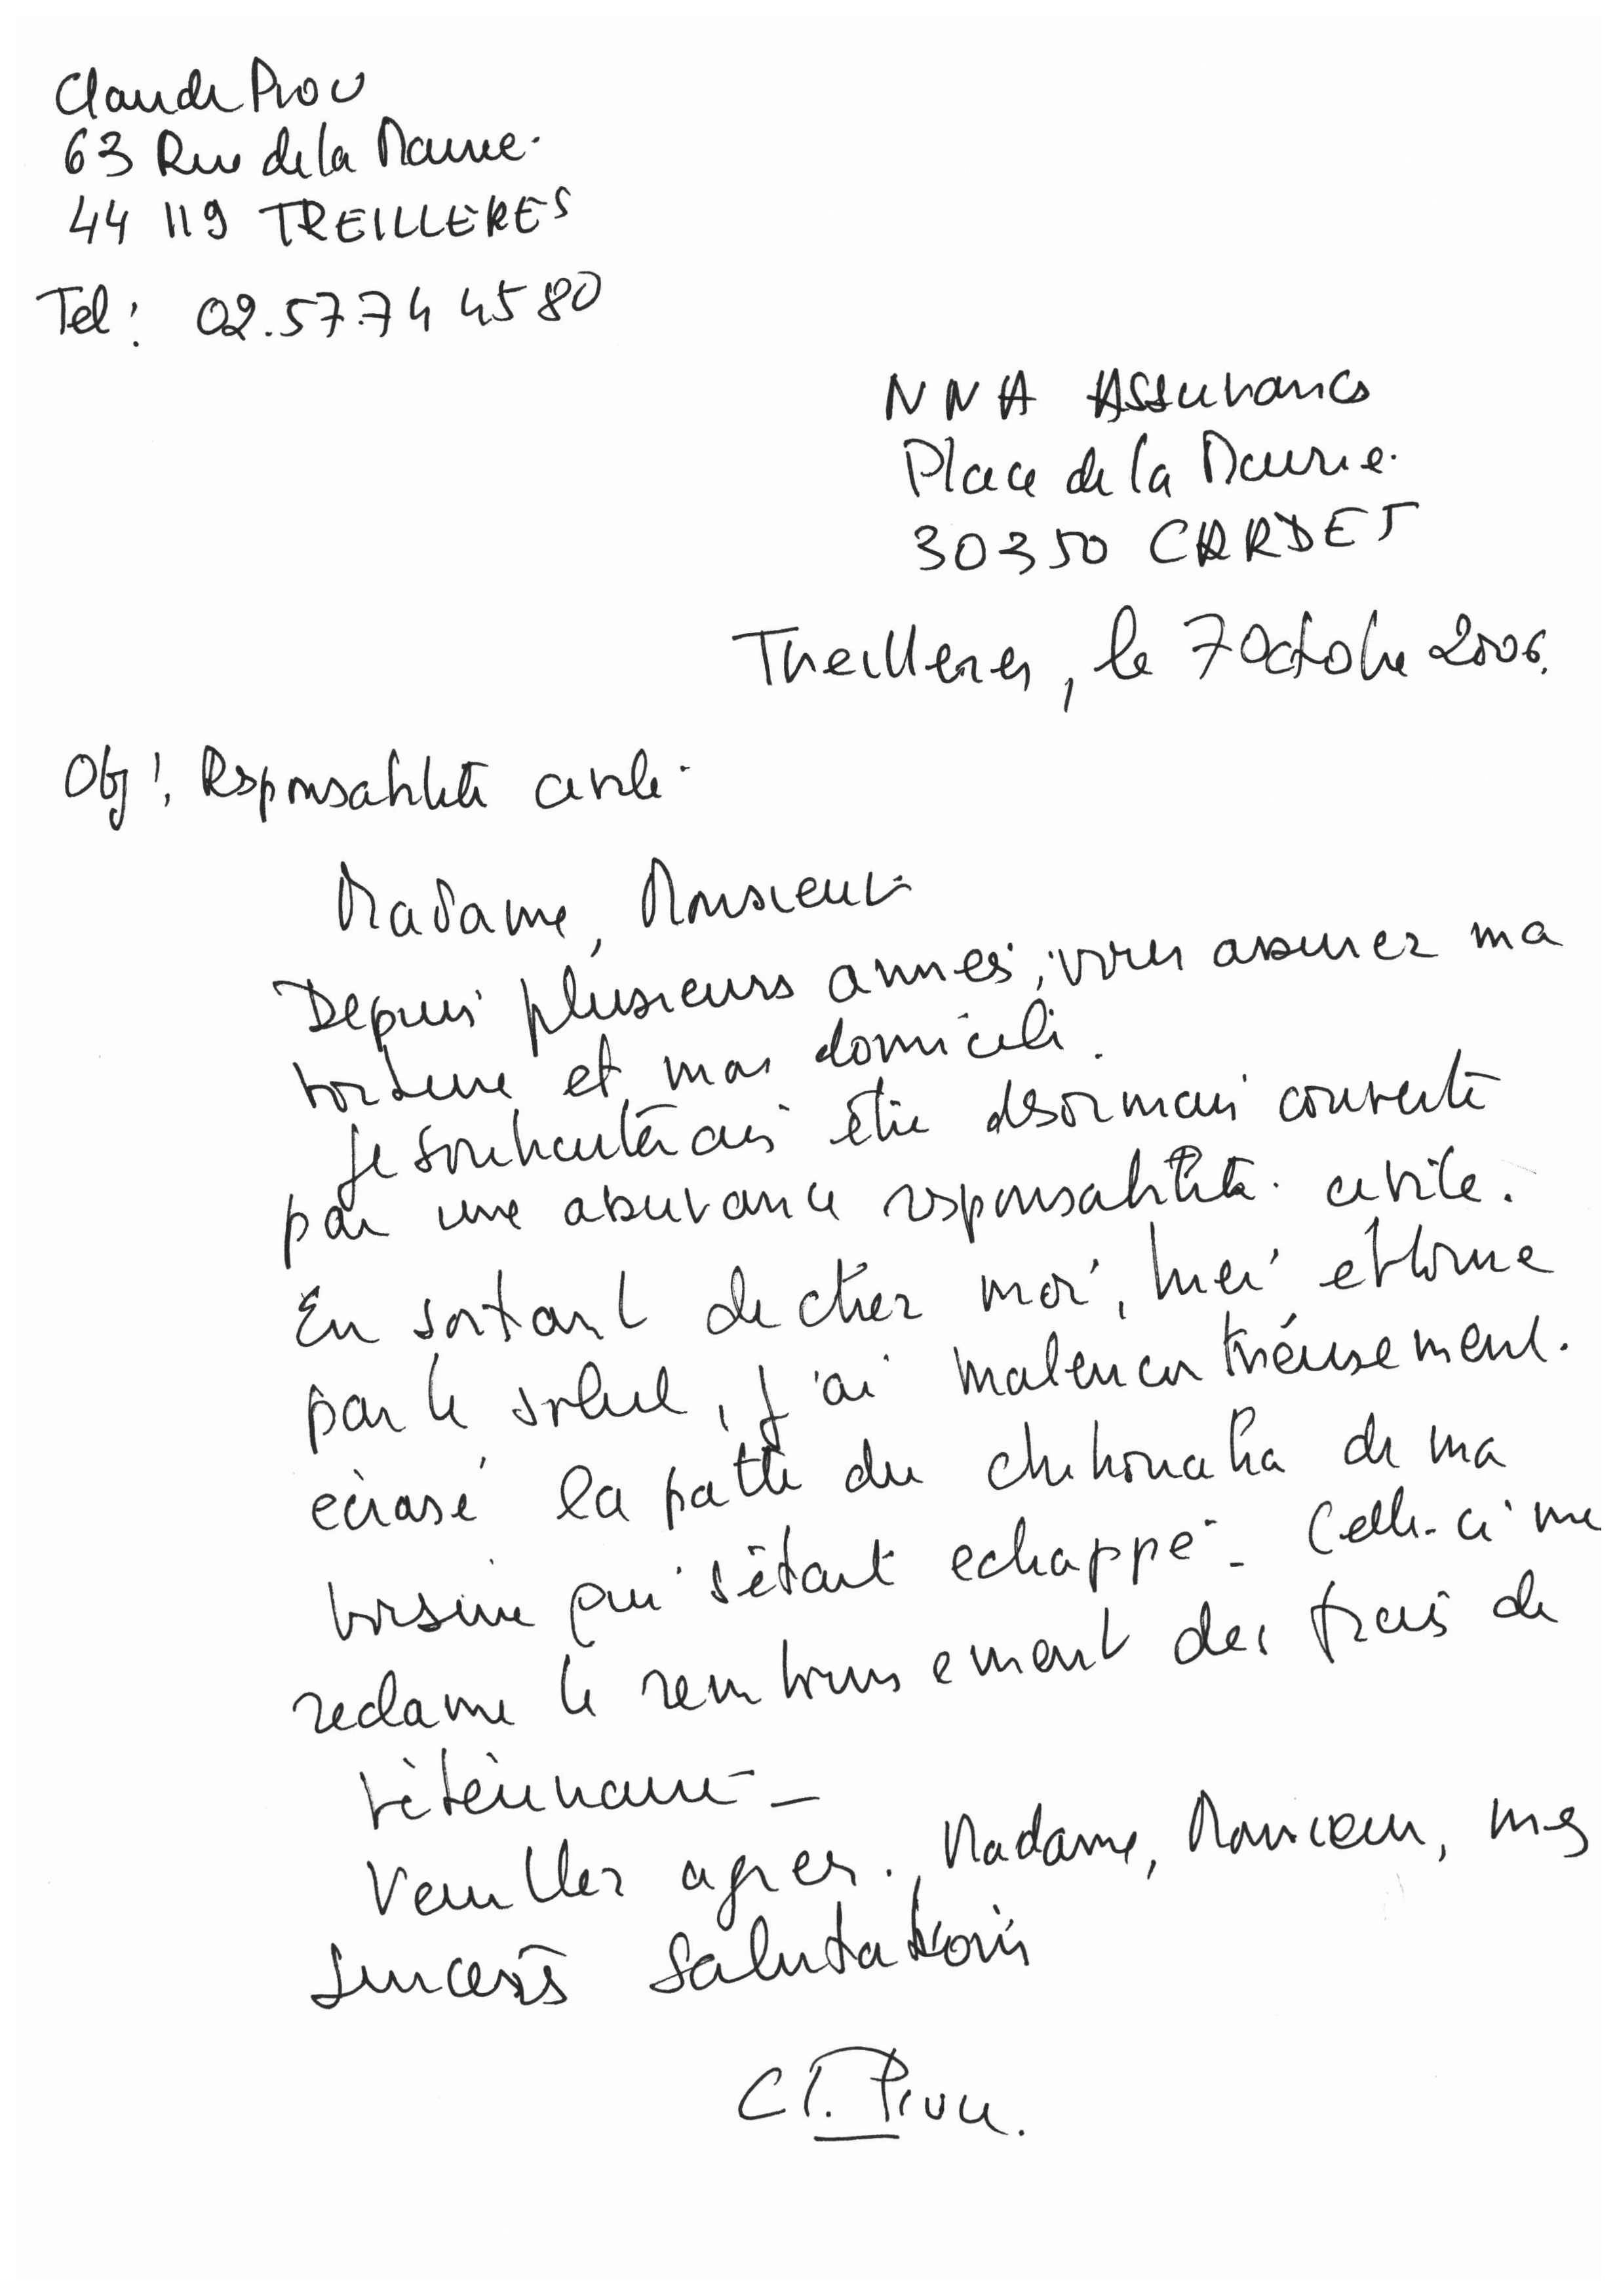 Claude Prou
63 Rue de la Mairie.
44 119 TREILLERES
Tel : 02.57.74 45 80
NNA Assurances
Place de la Mairie.
30350 CARDET
Treilleres, le 7 Octobre 2006.
Obj : Responsabilité civile.
Madame, Monsieur
Depuis plusieurs années, vous assurez ma
voiture et mon domicile.
Je souhaiterais être désormais couverte
par une assurance responsabilité civile.
En sortant de chez moi, hier éblouie
par le soleil, j'ai malencontreusement
écrasé la patte du chihouaha de ma
voisine qui s'était echappé. Celle-ci me
réclame le remboursement des frais de
vétérinaire.
Veuillez agréer, Madame, Monsieur, mes
sincères salutations
Cl. Prou.